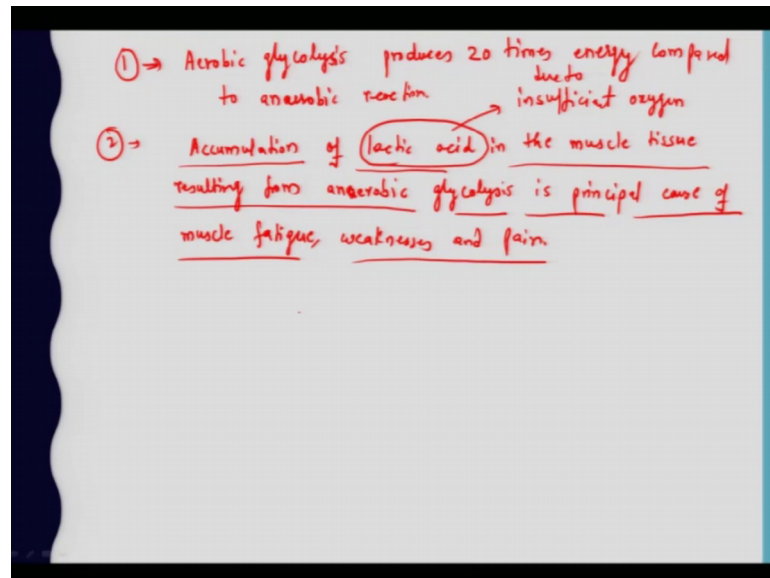 ① → Aerobic glycolysis produces 20 times energy compared
due to
to anaerobic reaction. insufficient oxygen
② → Accumulation of lactic acid in the muscle tissue
resulting from anaerobic glycolysis is principal cause of
muscle fatigue, weaknesses and pain.